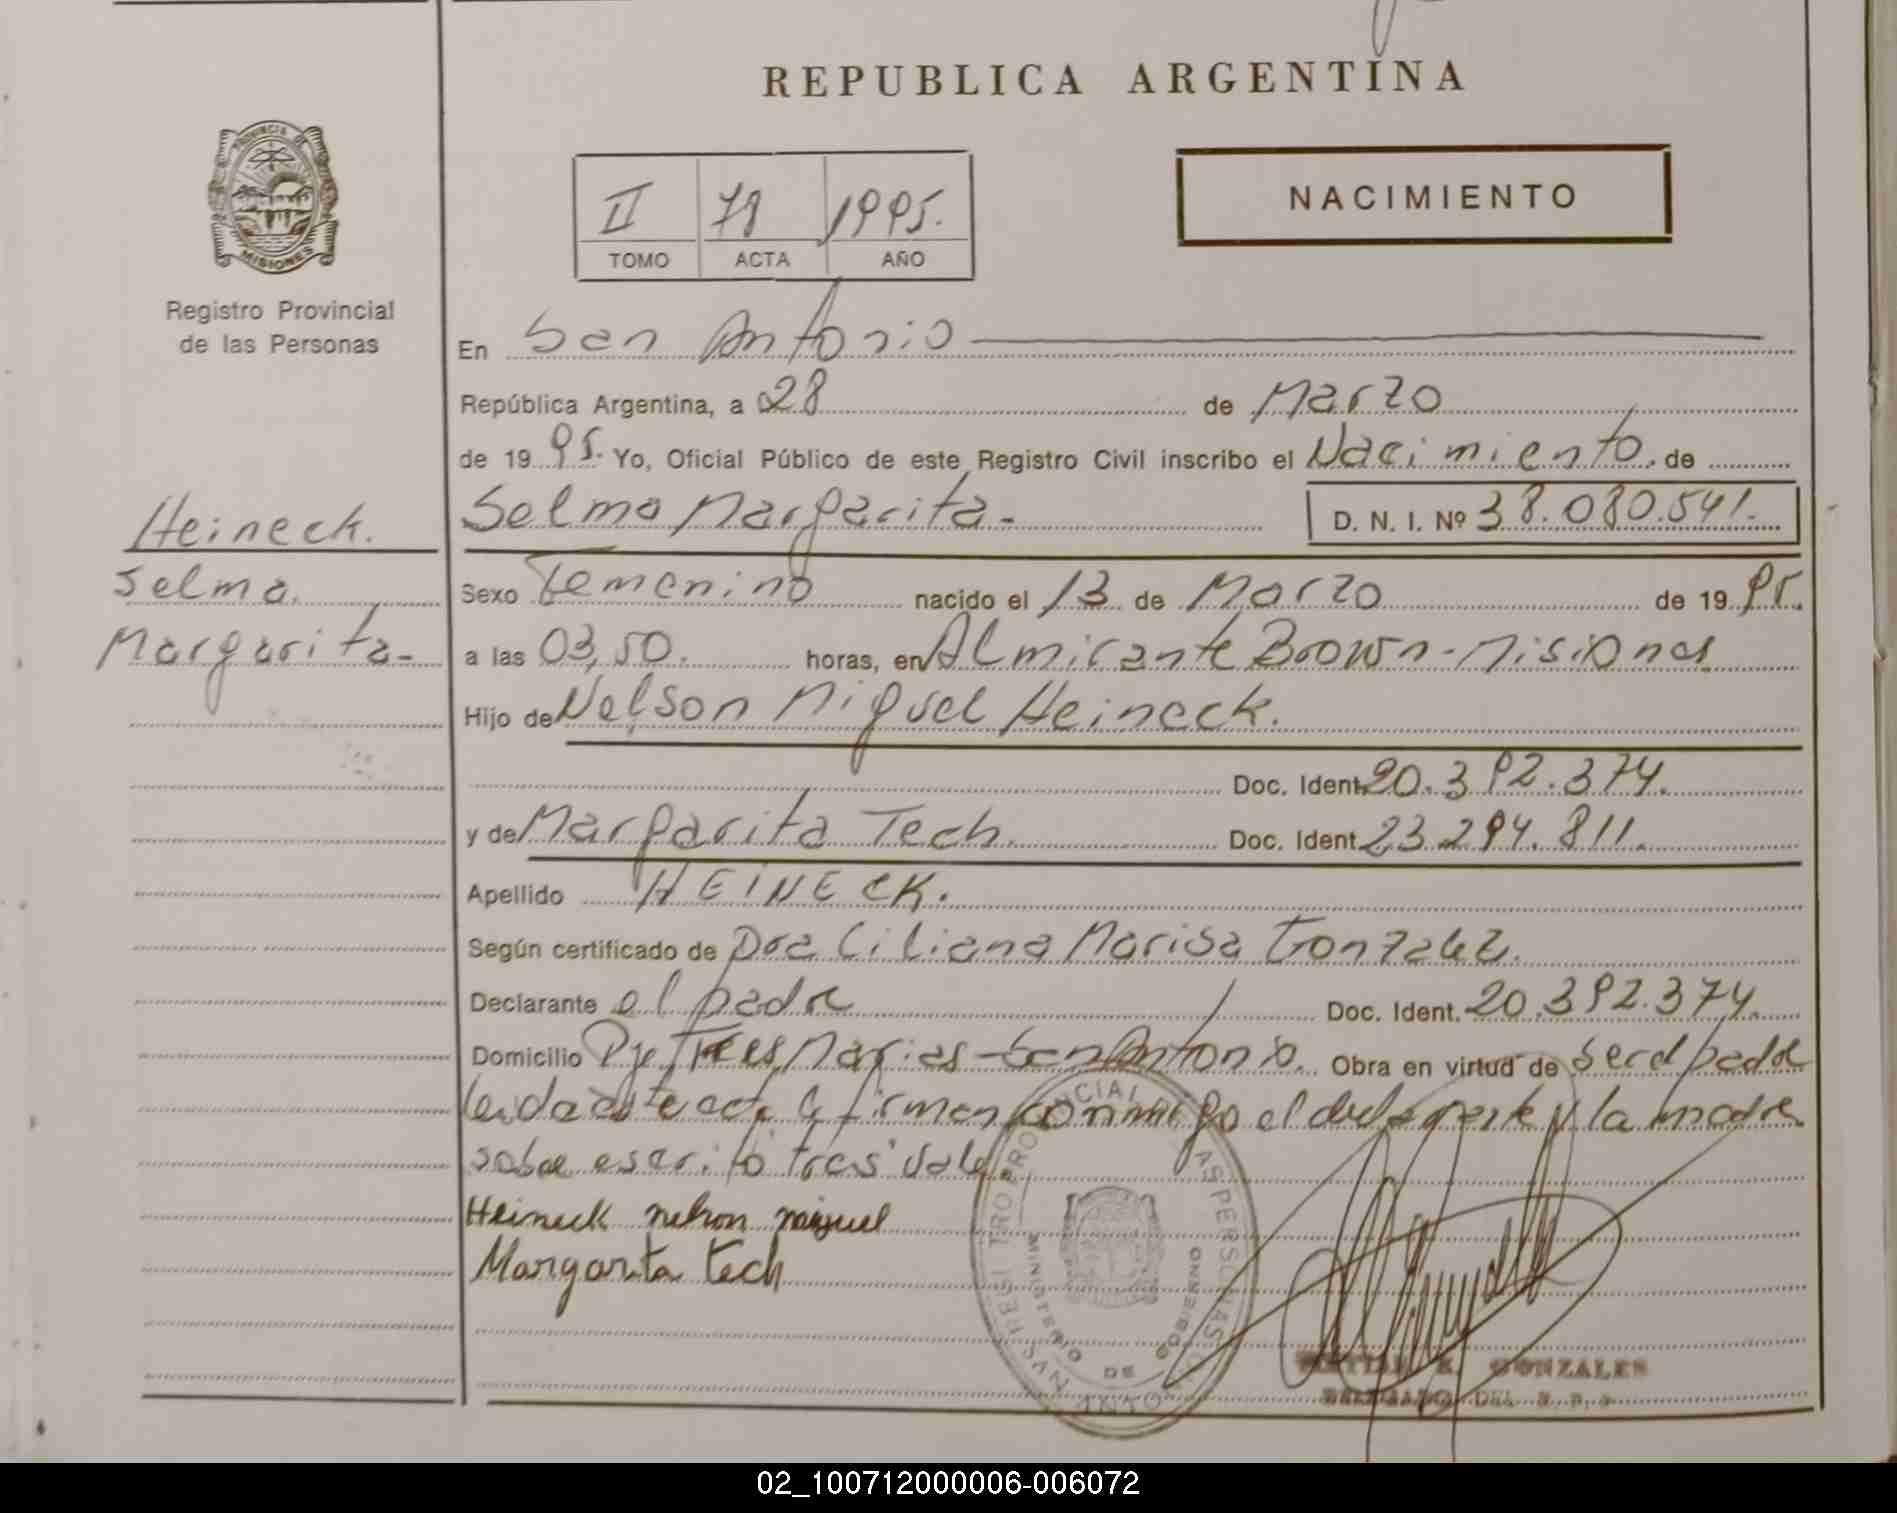 REPUBLICA ARGENTINA
PROVINCIA DE
MISIONES
Registro Provincial
de las Personas
NACIMIENTO
II 79 1995.
TOMO ACTA AÑO
En San Antonio
República Argentina, a 28 de Marzo
de 1995. Yo, Oficial Público de este Registro Civil inscribo el Nacimiento. de
Heineck.
Selma Margarita.- D. N. I. Nº 38.080.541.
Selma.
Sexo Femenino nacido el 13 de Marzo de 1995.
Margarita-
a las 03,50. horas, en Almirante Brown-Misiones
Hijo de Nelson Miguel Heineck.
Doc. Ident. 20.392.374.
y de Margarita Tech. Doc. Ident. 23.294.811.
Apellido HEINECK.
Según certificado de Dra Liliana Marisa Gonzalez.
Declarante el padre Doc. Ident. 20.392.374.
Domicilio Pje Tres Marias-San Antonio. Obra en virtud de ser el padre
leida este acta la firman conmigo el declarante y la madre
sobre escrito "tres" vale
Heineck nelson miguel
Margarita tech
MINISTERIO DE GOBIERNO
GONZALES
DELEGADO DEL R. P.
02_100712000006-006072